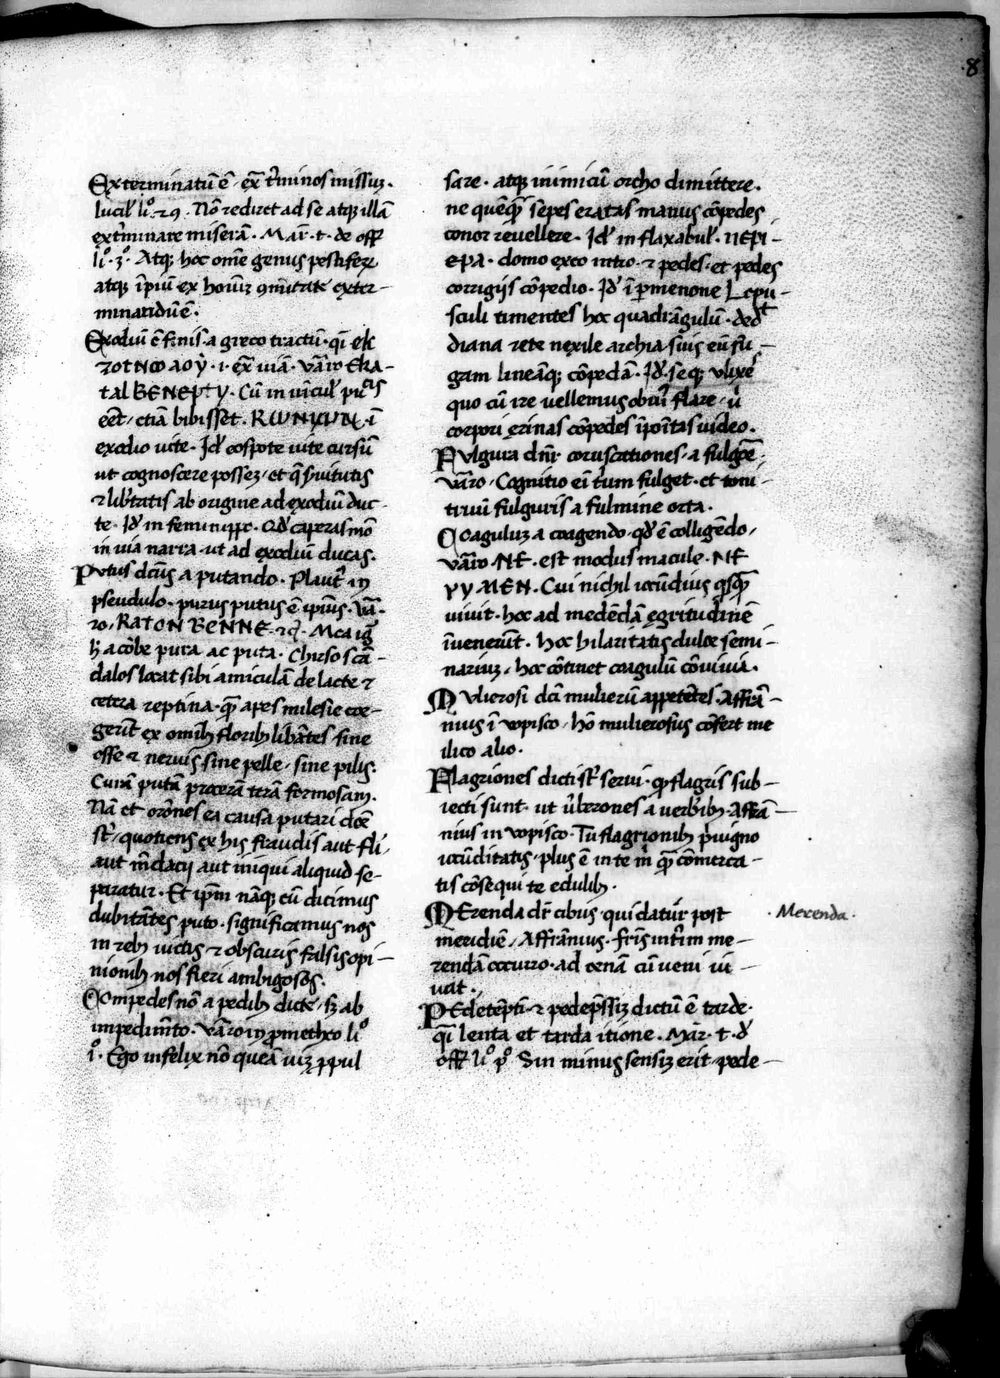 8
Exterminatū ē · ex̄ t̄minos missuꝫ ·
lucil' li° · Nō redirct ad se atqꝫ illā
ext̄minare miserā · Mar̄ · t · de off
li° · 3° · Atqꝫ hoc om̄e genus pestiferꝫ
atqꝫ īpiū ex hoīuꝫ ꝯmūtate exter-
minandū ē ·
Exodiū ē finis · a greco tractū · qī ek
· i · ex̄ uiā · Vārro EKA-
tal BENEPTY · Cū in uīcul'
eēt · etiā bibisset · i
exodio uite · Id' eospote uite cursū
ut cognoscere possez · et q̄ s'uitutis
⁊ lib'tatis ab origine ad exodiū duc-
te · Id' in · Qd' caperas mō
in uia narra · ut ad exodiū ducas ·
Putus dc̄us a putando · Plaut' in
pseudulo · purus putus ē ipīus · Vār
ro · KATON BENNE · Mea ig̃
pura ac puta · Chrīso scā-
dalos locat sibi amiculā de lacte ⁊
cetera reptina · quā apes milesie coe-
gerūt ex omībꝫ floribꝫ libātes · sine
osse ⁊ neruis · sine pelle · sine pilis ·
Curā putā procerā terā formosam ·
Nā et orōnes ea causa putari dcē
st̄ · quotiens ex his fraudis aut fli
aut m̄dacii aut iniqui aliquid se-
paratur · Et ipm̄ nāqꝫ cū dicimus
dubitātes puto · significamus nos
in rebꝫ iuctis ⁊ obscuris falsis opi-
nionibꝫ nos fieri ambigosos ·
Compedes nō a pedibꝫ dicte · sꝫ ab
impedimn̄to · Varro in p̄metheo li°
i° · Ego infelix nō queā uiꝫ ꝓpul
sare · atqꝫ inimicū orcho dimittere ·
ne quēq̄ sepes eratas manus cōpedes
conor reuellere · Id' in flaxabul' · ΠΕΡΙ-
ΕΡΑ · domo exeo intro · ⁊ pedes · et pedes
corrigiis cōpedio · Id' ī p̄menone Lepu-
sculi timentes hoc quadrāgulū · dedᵗ
diana rete nexile archia · suis eū fu-
gam lineāqꝫ cōpedā · Id' seqꝫ ulixē
quo cū ire uellemus obuiū flare · ū
corpori erinas cōpedes īpoītas uideo ·
Fulgura dnr̄ coruscationes · a fulgōe ·
Vārro · Cognitio eī tm̄ fulget · et toni-
truū fulguris a fulmine orta ·
Coaguluꝫ a coagendo · qd' ē colligēdo ·
Vārro · NE · est modus macule · NE
YY MEN · Cui nichil iocūdius qsq̄
uiuit · hoc ad medēdā egritudinē
īuenerūt · hoc hilaritatis dulce semi-
nariuꝫ · hoc cōtinet coagulū cōuiuia ·
Mulierosi dc̄i mulierū appetētes · Affrā-
nius ī vopisco · hō mulierosus cōfert me
ilico alio ·
Flagriones dicti st̄ serui · q flagris sub-
iecti sunt · ut ūberones a uerb'ibꝫ · Affrā-
nius in vopisco · Tū flagrionibꝫ p̄iugno
iocūditatis · plus ē in te m̄ q̄ cōmerca-
tis cōsequi te edulibꝫ ·
Merenda dr̄ cibus · qui datur post
meridiē · Affrānius · frīs int'im me-
rendā occurro · ad cenā cū ueni iu-
uat ·
Pedetēptī · ⁊ pedep̄ssiꝫ dictū ē tarde ·
qī lenta et tarda itione · Mar̄ · t · d'
off li° p° Sin minus sensiꝫ erit · pede-
· Merenda ·